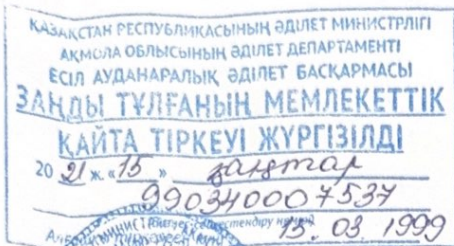 ҚАЗАҚСТАН РЕСПУБЛИКАСЫНЫҢ ӘДІЛЕТ МИНИСТРЛІГІ
АҚМОЛА ОБЛЫСЫНЫҢ ӘДІЛЕТ ДЕПАРТАМЕНТІ
ЕСІЛ АУДАНАРАЛЫҚ ӘДІЛЕТ БАСҚАРМАСЫ
ЗАҢДЫ ТҰЛҒАНЫҢ МЕМЛЕКЕТТІК
ҚАЙТА ТІРКЕУІ ЖҮРГІЗІЛДІ
20 21 ж. «15» қаңтар
990340007537
15. 03 1999